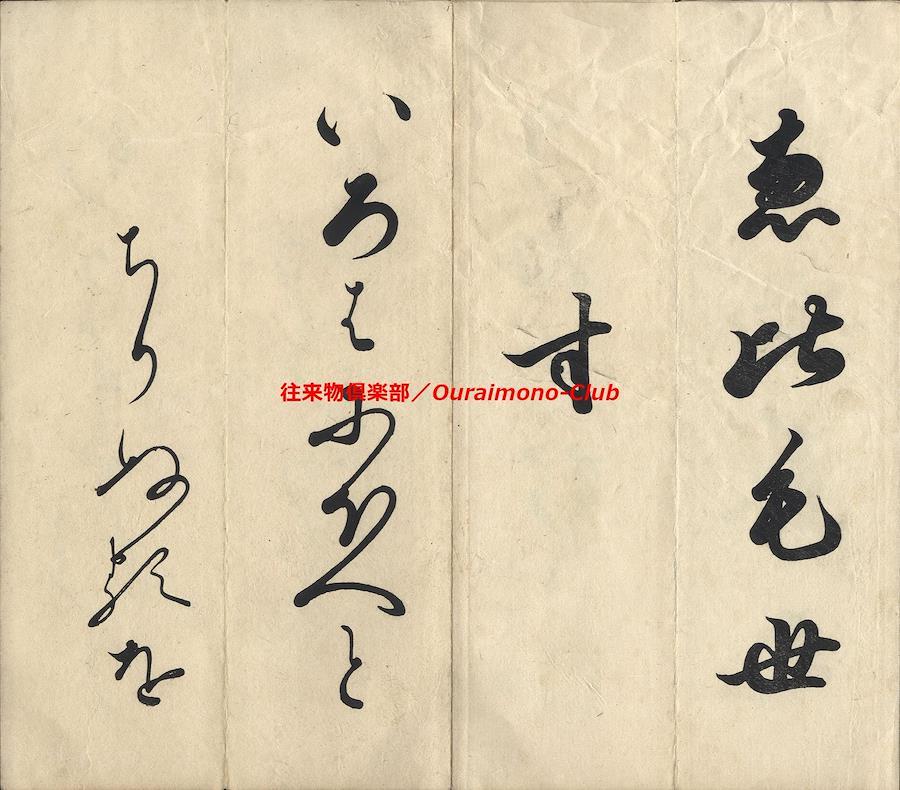 恵比毛世
寸
いろはにほへと
ちりぬるを
往来物倶楽部／Ouraimono-Club